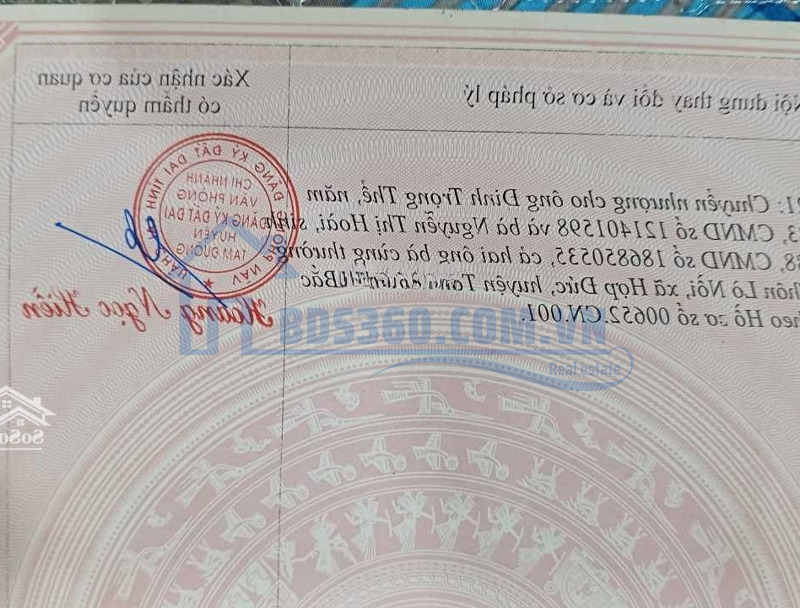 Nội dung thay đổi và cơ sở pháp lý
Xác nhận của cơ quan
có thẩm quyền
: Chuyển nhượng cho ông Đinh Trọng Thể, năm
3, CMND số 121401598 và bà Nguyễn Thị Hoài, sinh
88, CMND số 186850535, cả hai ông bà cùng thường
thôn Lò Nồi, xã Hợp Đức, huyện Tân Bắc
theo Hồ sơ số 00652.CN.001.
ĐĂNG KÝ ĐẤT ĐAI TỈNH
CHI NHÁNH
VĂN PHÒNG
ĐĂNG KÝ ĐẤT ĐAI
HUYỆN
TAM ĐƯỜNG
Hoàng Ngọc Hiền
BDS360.COM.VN
Real estate
SoSo